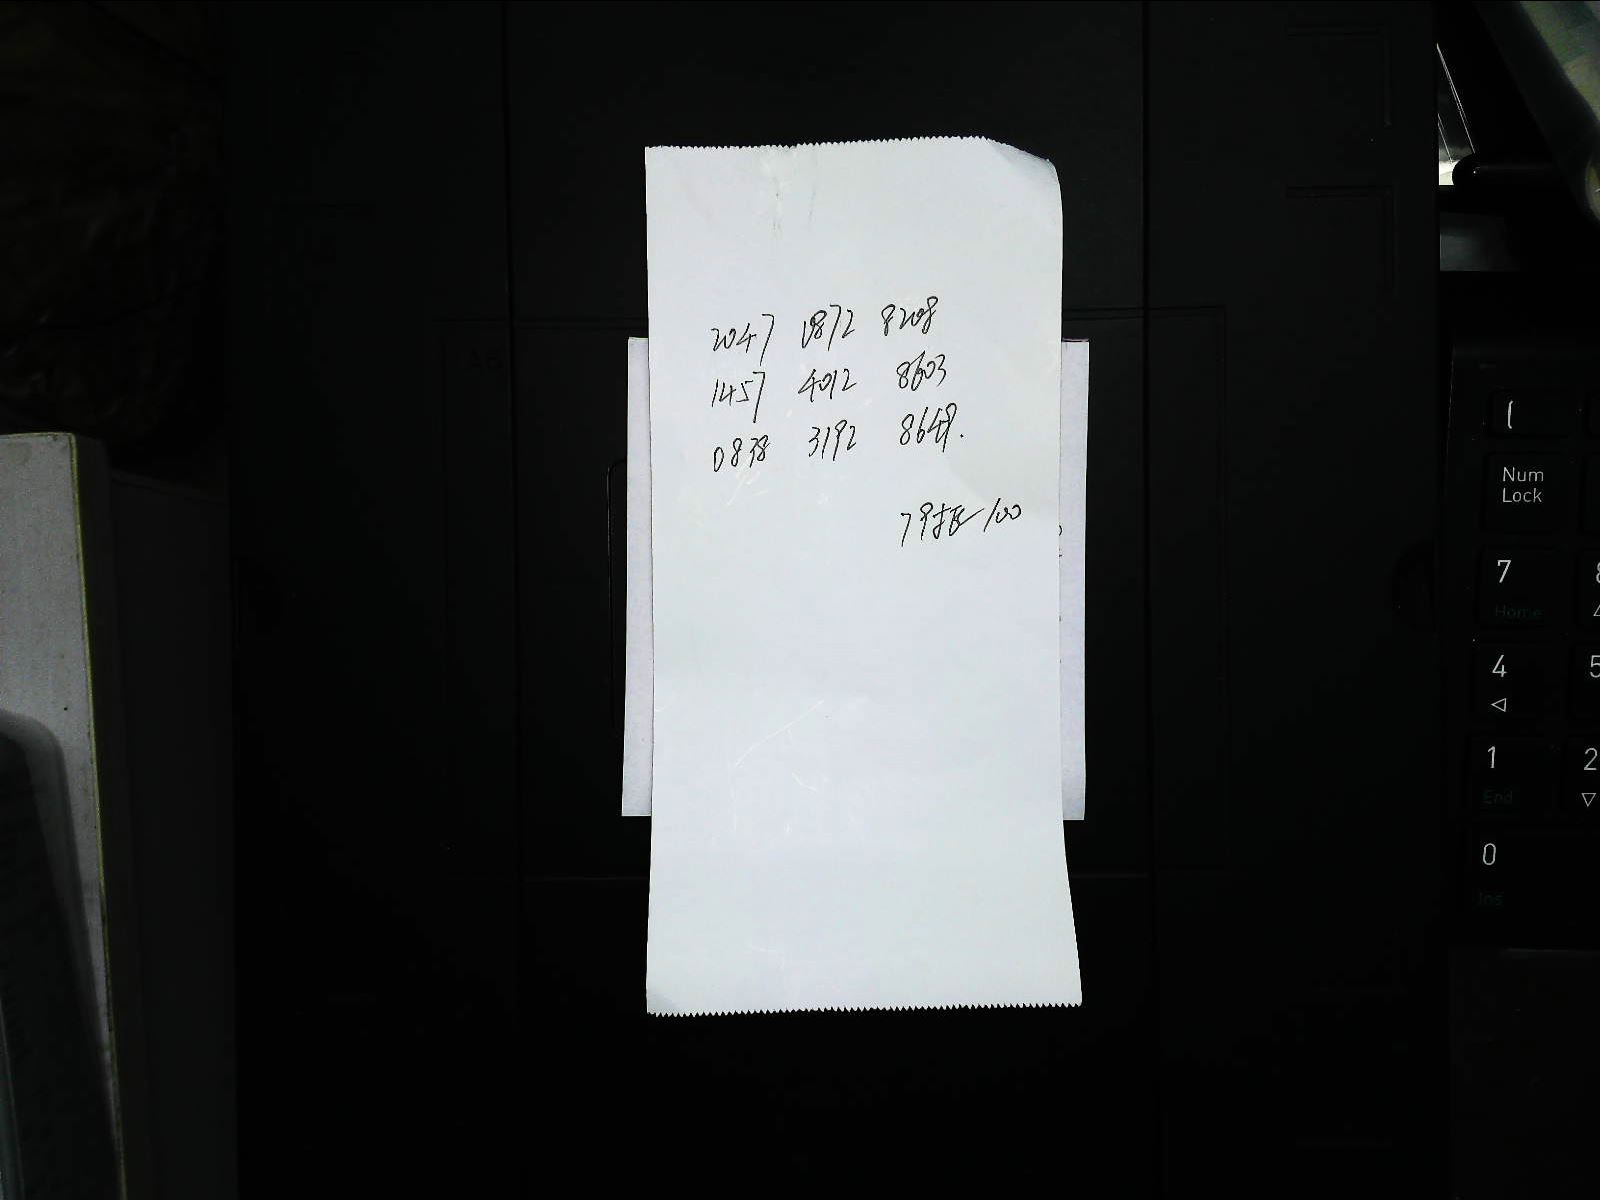 2047 0872 8208
1457 4012 8603
0838 3192 8648.
7个 100
A5
(
Num
Lock
7
Home
8
4
5
1
End
2
0
Ins